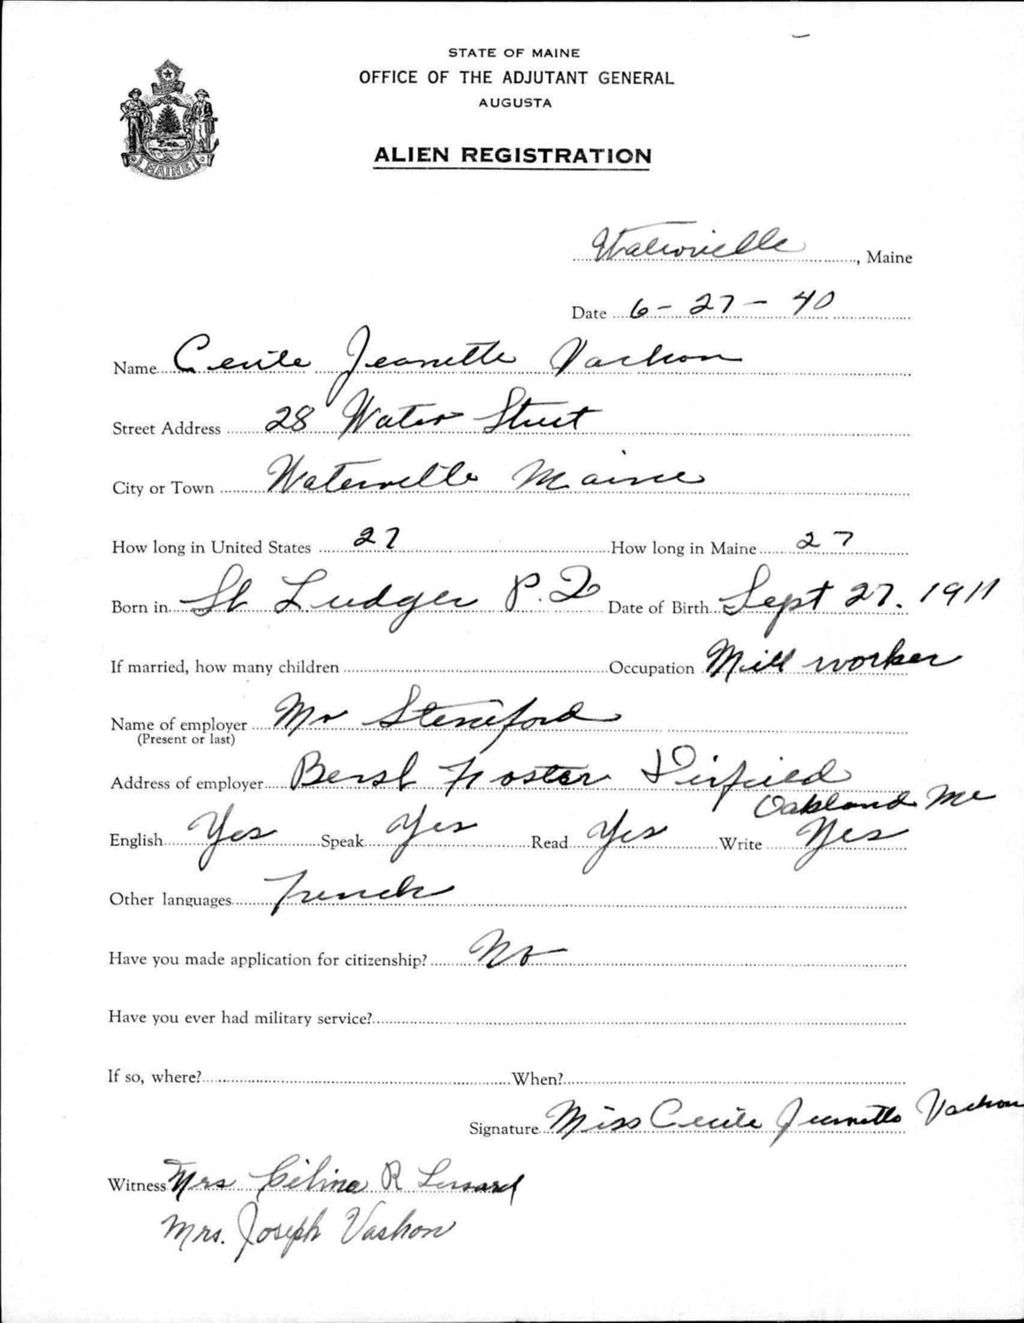 STATE OF MAINE
OFFICE OF THE ADJUTANT GENERAL
AUGUSTA
ALIEN REGISTRATION
MAINE
Waterville, Maine
Date 6-27-40
Name Cecile Jeanette Vachon
Street Address 28 Water Street
City or Town Waterville Maine
How long in United States 27 How long in Maine 27
Born in St Ludger P.Q Date of Birth Sept 27. 1911
If married, how many children Occupation Mill worker
Name of employer Mr
(Present or last)
Address of employer Foster
Oakland Me
English Yes Speak Yes Read Yes Write Yes
Other languages French
Have you made application for citizenship? No
Have you ever had military service?
If so, where? When?
Signature Miss Cecile Jeanette Vachon
Witness Mrs Célina R Lessard
Mrs. Joseph Vashon